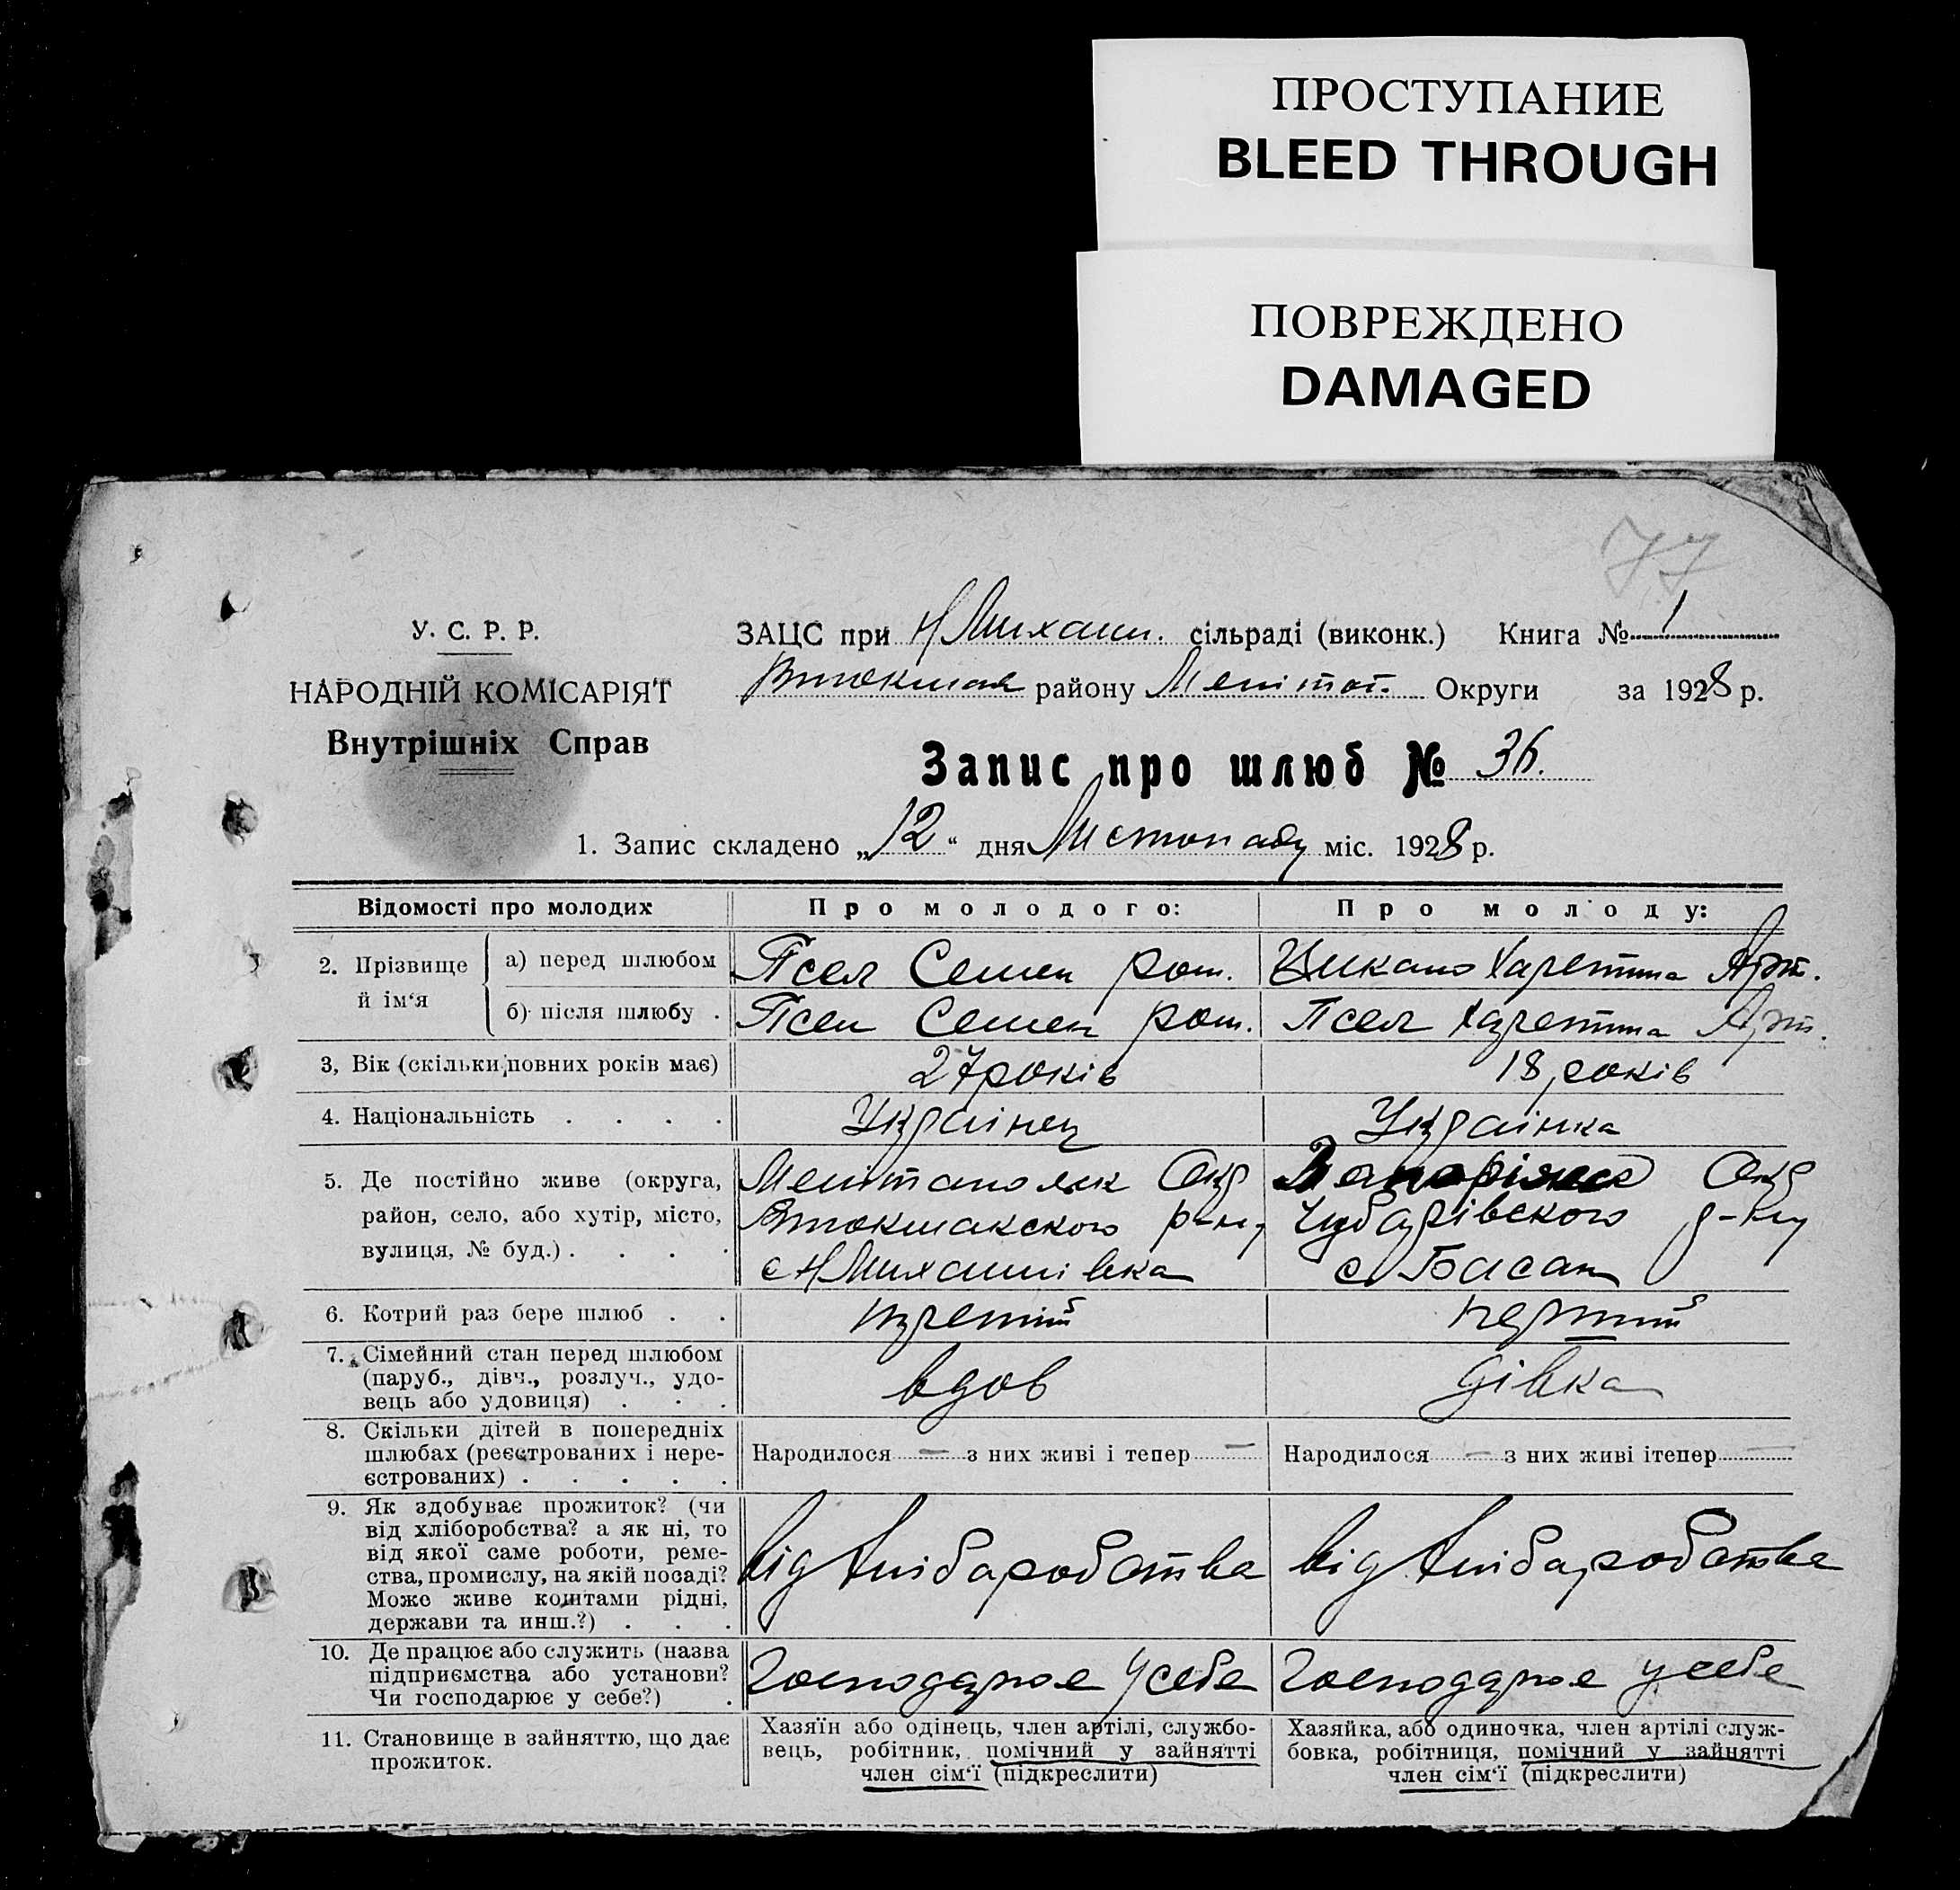 ПРОСТУПАНИЕ
BLEED THROUGH
ПОВРЕЖДЕНО
DAMAGED
77
У. С. Р. Р.
НАРОДНІЙ КОМІСАРІЯТ
Внутрішніх Справ
ЗАЦС при Н Михайл. сільраді (виконк.) Книга № 1
Втокмак району Меліт Округи за 1928 р.
Запис про шлюб № 36.
1. Запис складено „12“ дня Листопаду міс. 1928 р.
Відомості про молодих Про молодого: Про молоду:
2. Прізвище й ім‘я
а) перед шлюбом Псел Семен Ром. Цикало Харетина Арт.
б) після шлюбу . Псел Семен Ром. Псел Харетина Арт.
3, Вік (скільки повних років має) 27 років 18 років
4. Національність . . . . Українец Українка
5. Де постійно живе (округа, Мелітопольск Окр Запоріжск Окр
район, село, або хутір, місто, Втокмакского р-ну Чубарівского р-ну
вулиця, № буд.) . . . . с Н Михайлівка с Басань
6. Котрий раз бере шлюб . . третій перший
7. Сімейний стан перед шлюбом
(паруб., дівч., розлуч., удо-
вець або удовиця) . . . вдов дівка
8. Скільки дітей в попередніх
шлюбах (реєстрованих і нере-
єстрованих) . . . . .
Народилося — з них живі і тепер — Народилося — з них живі ітепер —
9. Як здобуває прожиток? (чи
від хліборобства? а як ні, то
від якої саме роботи, реме-
ства, промислу, на якій посаді?
Може живе коштами рідні,
держави та инш.?) . . .
від хлібаробства від хлібаробства
10. Де працює або служить (назва
підприємства або установи?
Чи господарює у себе?) .
Господарює у себе Господарює у себе
11. Становище в зайняттю, що дає
прожиток.
Хазяїн або одінець, член артілі, службо-
вець, робітник, помічний у зайнятті
член сім‘ї (підкреслити)
Хазяйка, або одиночка, член артілі служ-
бовка, робітниця, помічний у зайнятті
член сім‘ї (підкреслити)